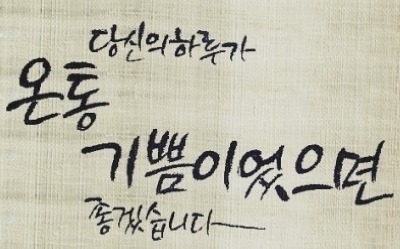 당신의 하루가
온통
기쁨이었으면
좋겠습니다